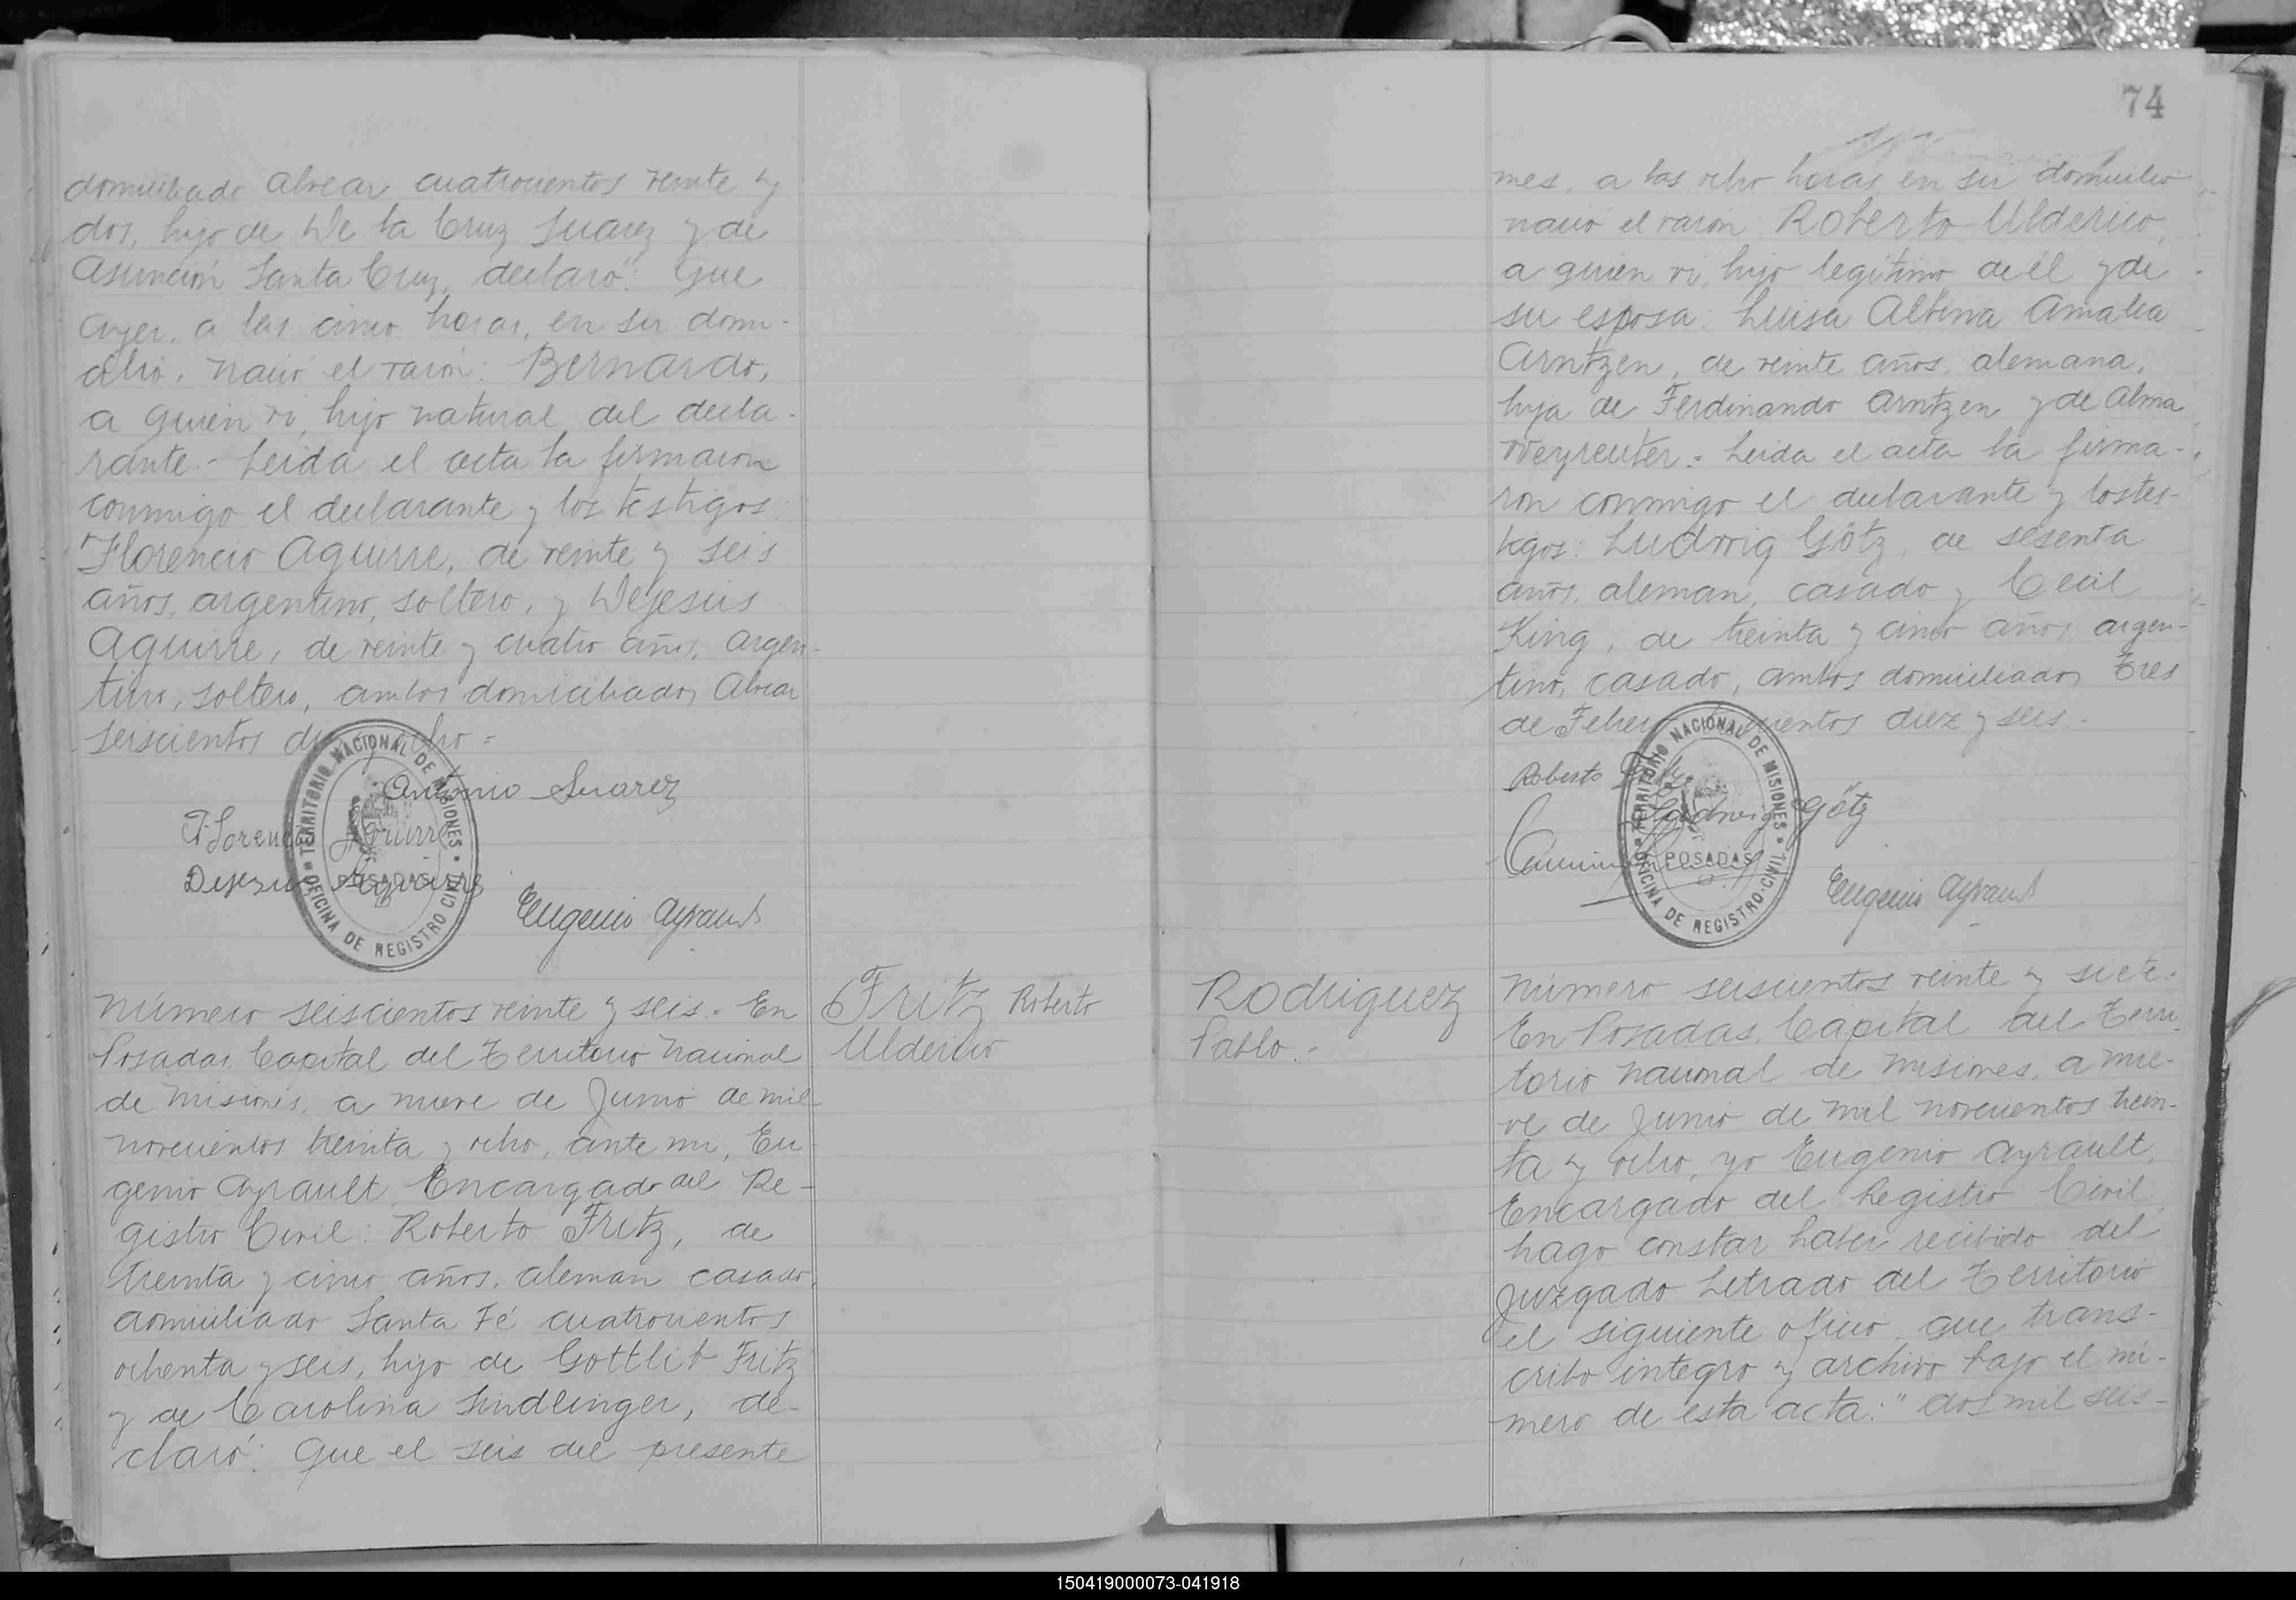 domiciliado Alvear cuatrocientos veinte y
dos, hijo de De la Cruz Suarez y de
Asunción Santa Cruz, declaró: Que
ayer, a las cinco horas, en su domi-
cilio, nació el varón: Bernardo,
a quien vi, hijo natural del decla-
rante.- Leida el acta la firmaron
conmigo el declarante y los testigos:
Florencio Aguirre, de veinte y seis
años, argentino, soltero, y Dejesús
Aguirre, de veinte y cuatro años, argen-
tino, soltero, ambos domiciliados Alvear
seiscientos
Antonio Suarez
Florencio Aguirre
Dejesus Aguirre
Eugenio Ayrault
TERRITORIO NACIONAL DE MISIONES
POSADAS
OFICINA DE REGISTRO CIVIL
Número seiscientos veinte y seis.- En
Posadas, Capital del Territorio Nacional
de Misiones, a nueve de Junio de mil
novecientos treinta y ocho, ante mi, Eu-
genio Ayrault, Encargado del Re-
gistro Civil: Roberto Fritz, de
treinta y cinco años, aleman casado,
domiciliado Santa Fé cuatrocientos
ochenta y seis, hijo de Gottlib Fritz
y de Carolina Sindlinger, de-
claró: Que el seis del presente
Fritz Roberto
Ulderico
74
mes, a las ocho horas, en su domicilio
nació el varón: Roberto Ulderico,
a quien vi, hijo legítimo de él y de
su esposa: Luisa Albina Amalia
Arntzen, de veinte años, alemana,
hija de Ferdinando Arntzen y de Alma
Weyreuter.- Leida el acta la firma-
ron conmigo el declarante y los tes-
tigos: Ludwig Götz, de sesenta
años, aleman, casado y Cecil
King, de treinta y cinco años, argen-
tino, casado, ambos domiciliados Tres
de Febrero diez y seis.-
Roberto Fritz
Ludwig Götz
Eugenio Ayrault
TERRITORIO NACIONAL DE MISIONES
POSADAS
OFICINA DE REGISTRO CIVIL
Rodriguez
Pablo.-
Número seiscientos veinte y siete.-
En Posadas, Capital del Terri-
torio Nacional de Misiones, a nue-
ve de Junio de mil novecientos trein-
ta y ocho, yo Eugenio Ayrault,
Encargado del Registro Civil,
hago constar haber recibido del
Juzgado Letrado del Territorio
el siguiente oficio que trans-
cribo integro y archivo bajo el nú-
mero de esta acta: "dos mil seis-
150419000073-041918